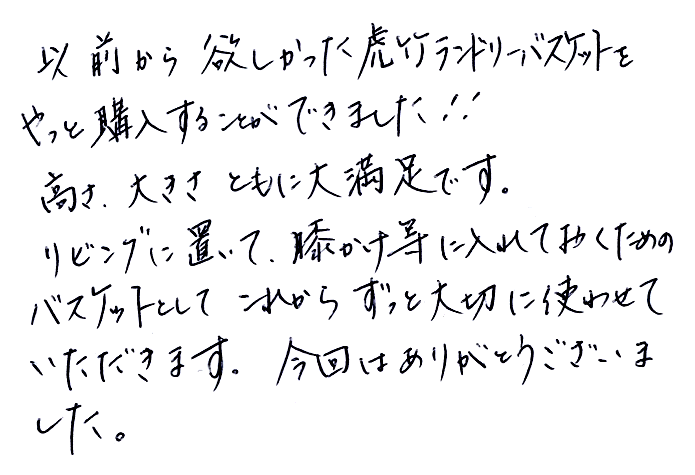 以前から欲しかった虎竹ランドリーバスケットを
やっと購入することができました!!
高さ、大きさともに大満足です。
リビングに置いて、膝かけ等に入れておくための
バスケットとしてこれからずっと大切に使わせて
いただきます。今回はありがとうございま
した。